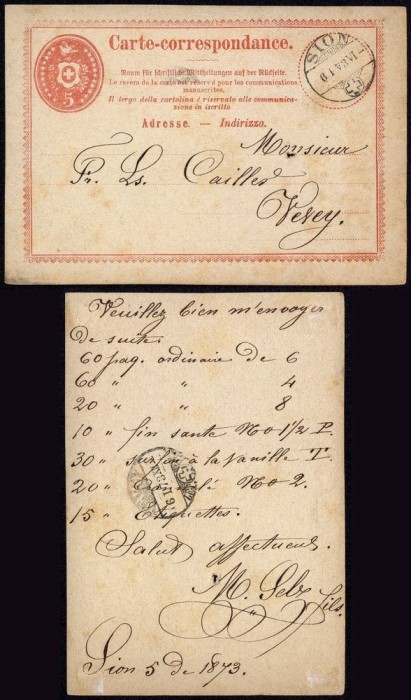 Carte-correspondance.
Raum für schriftliche Mittheilungen auf der Rückseite.
Le revers de la carte est réservé pour les communications
manuscrites.
Il tergo della cartolina è riservato alle communica-
zioni in iscritto
Adresse. — Indirizzo.
5
SION
Monsieur
Fr. Ls. Cailler
Vevey.
Veuillez bien m'envoyer
de suite.
60 paq. ordinaire de 6
60 " " 4
20 " " 8
10 " fin sante No 1/2 P.
30 " à la vanille T.
20 " No 2.
15 " Etiquettes.
Salut affectueux.
M. Gelz fils.
Sion 5 de 1873.